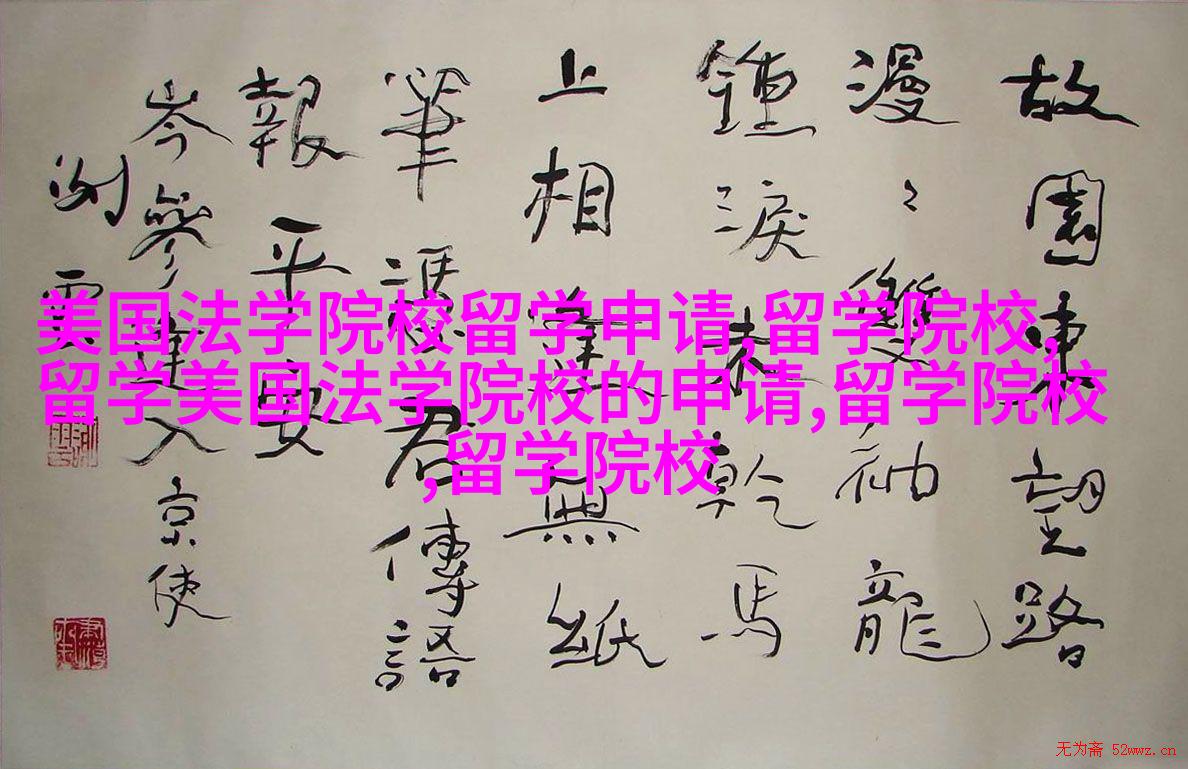 故園東望路
漫〻雙袖龍
鍾淚未乾馬
上相逢無紙
筆憑君傳語
報平安
岑參逢入京使
美国法学院校留学申请,留学院校,
留学美国法学院校的申请,留学院校
,留学院校
无为斋 52wwz.cn